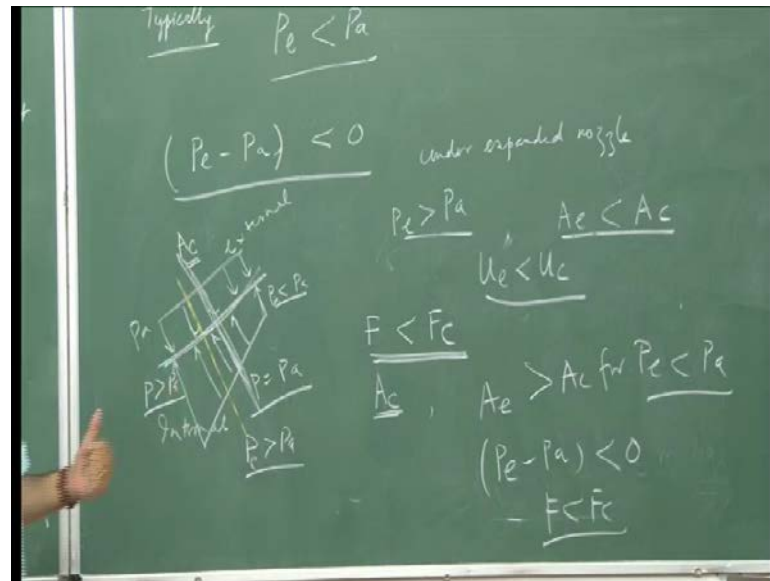 Typically Pe < Pa
(Pe - Pa) < 0
under expanded nozzle
Pe > Pa Ae < Ac
Ue < Uc
F < Fc
Ac, Ae > Ac for Pe < Pa
(Pe - Pa) < 0
- F < Fc
Ac
external
Pa
Pe < Pa
P > Pa
P = Pa
Internal
Pe > Pa